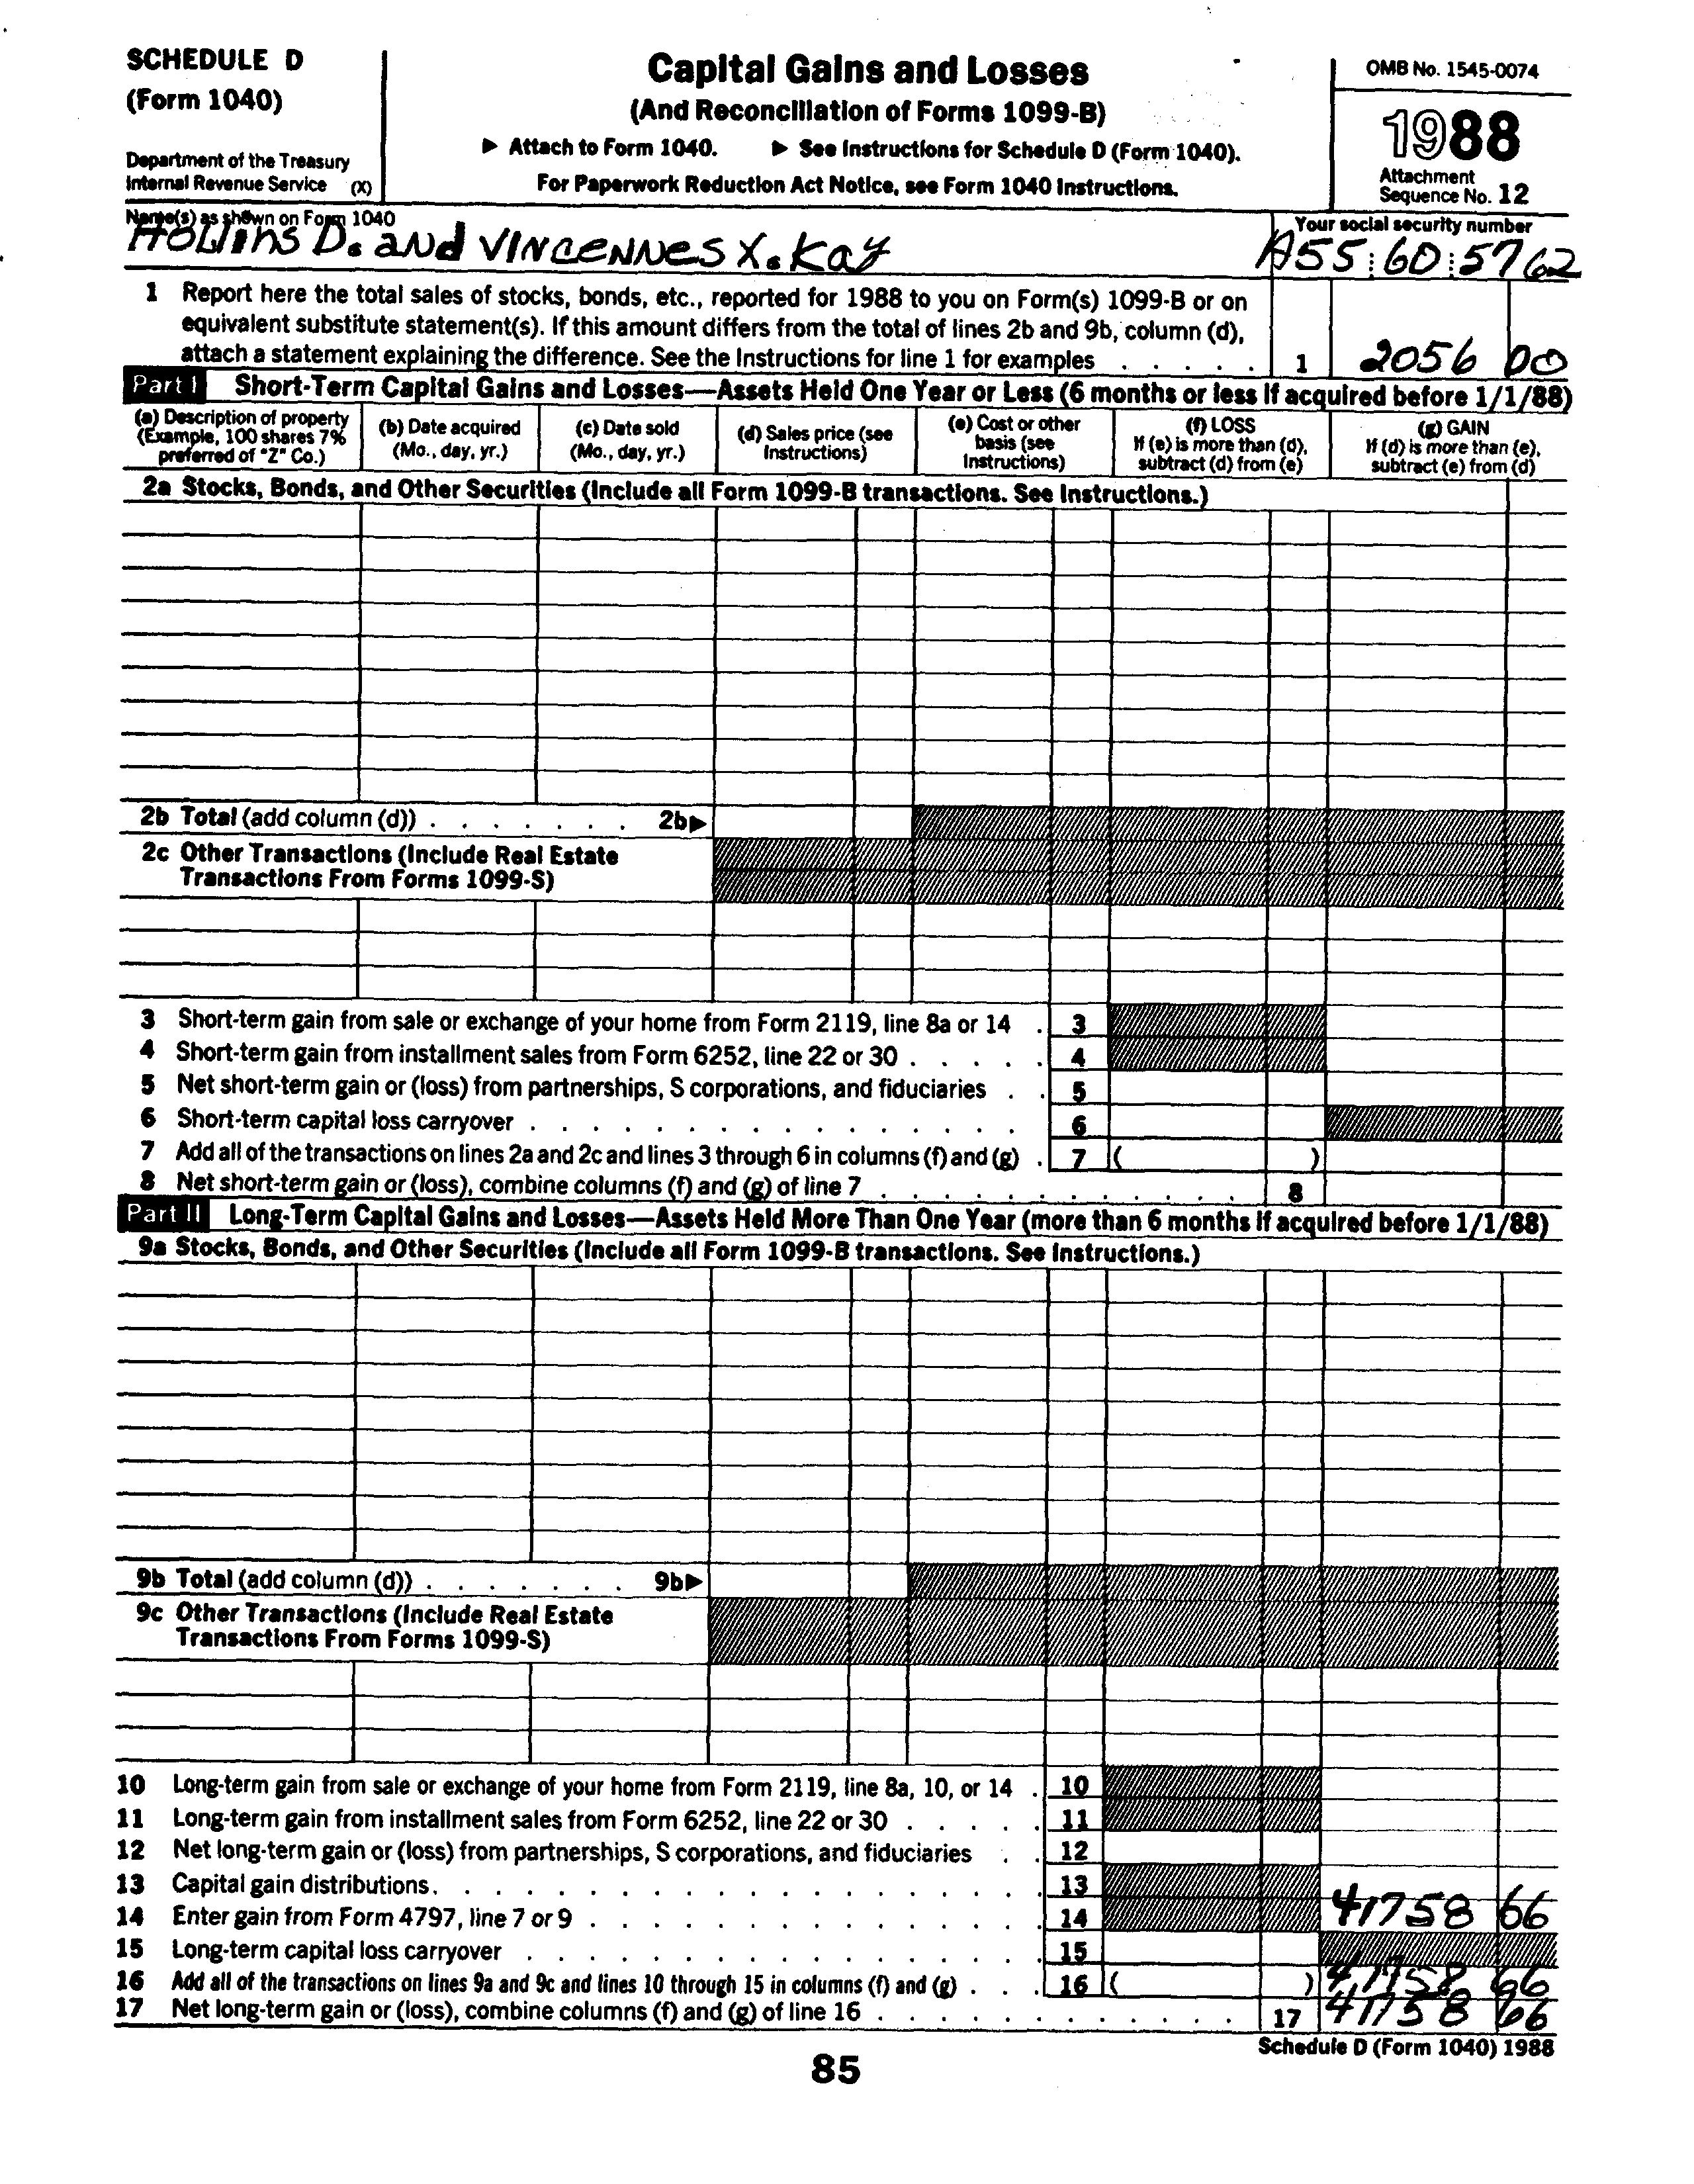 SCHEDULE D
(Form 1040)
Department of the Treasury
Internal Revenue Service (X)
Capital Gains and Losses
(And Reconciliation of Forms 1099-B)
▶ Attach to Form 1040. ▶ See Instructions for Schedule D (Form 1040).
For Paperwork Reduction Act Notice, see Form 1040 Instructions.
OMB No. 1545-0074
1988
Attachment
Sequence No. 12
Name(s) as shown on Form 1040
Hollins D. and VINCENNES X. Kay
Your social security number
A55 60 5762
1 Report here the total sales of stocks, bonds, etc., reported for 1988 to you on Form(s) 1099-B or on
equivalent substitute statement(s). If this amount differs from the total of lines 2b and 9b, column (d),
attach a statement explaining the difference. See the Instructions for line 1 for examples . . . . . 1 2056 00
Part I Short-Term Capital Gains and Losses—Assets Held One Year or Less (6 months or less if acquired before 1/1/88)
(a) Description of property
(Example, 100 shares 7%
preferred of "Z" Co.)
(b) Date acquired
(Mo., day, yr.)
(c) Date sold
(Mo., day, yr.)
(d) Sales price (see
Instructions)
(e) Cost or other
basis (see
Instructions)
(f) LOSS
If (e) is more than (d),
subtract (d) from (e)
(g) GAIN
If (d) is more than (e),
subtract (e) from (d)
2a Stocks, Bonds, and Other Securities (Include all Form 1099-B transactions. See Instructions.)
2b Total (add column (d)) . . . . . . . 2b▶
2c Other Transactions (Include Real Estate
Transactions From Forms 1099-S)
3 Short-term gain from sale or exchange of your home from Form 2119, line 8a or 14 . 3
4 Short-term gain from installment sales from Form 6252, line 22 or 30 . . . . . 4
5 Net short-term gain or (loss) from partnerships, S corporations, and fiduciaries . . 5
6 Short-term capital loss carryover . . . . . . . . . . . . . . . . 6
7 Add all of the transactions on lines 2a and 2c and lines 3 through 6 in columns (f) and (g) . 7 ( )
8 Net short-term gain or (loss), combine columns (f) and (g) of line 7 . . . . . . . . . . . 8
Part II Long-Term Capital Gains and Losses—Assets Held More Than One Year (more than 6 months if acquired before 1/1/88)
9a Stocks, Bonds, and Other Securities (Include all Form 1099-B transactions. See Instructions.)
9b Total (add column (d)) . . . . . . . 9b▶
9c Other Transactions (Include Real Estate
Transactions From Forms 1099-S)
10 Long-term gain from sale or exchange of your home from Form 2119, line 8a, 10, or 14 . 10
11 Long-term gain from installment sales from Form 6252, line 22 or 30 . . . . . 11
12 Net long-term gain or (loss) from partnerships, S corporations, and fiduciaries . . 12
13 Capital gain distributions. . . . . . . . . . . . . . . . . . . 13
14 Enter gain from Form 4797, line 7 or 9 . . . . . . . . . . . . . . 14 41758 66
15 Long-term capital loss carryover . . . . . . . . . . . . . . . . 15
16 Add all of the transactions on lines 9a and 9c and lines 10 through 15 in columns (f) and (g) . . . 16 ( ) 41758 66
17 Net long-term gain or (loss), combine columns (f) and (g) of line 16 . . . . . . . . . . . 17 41758 66
Schedule D (Form 1040) 1988
85